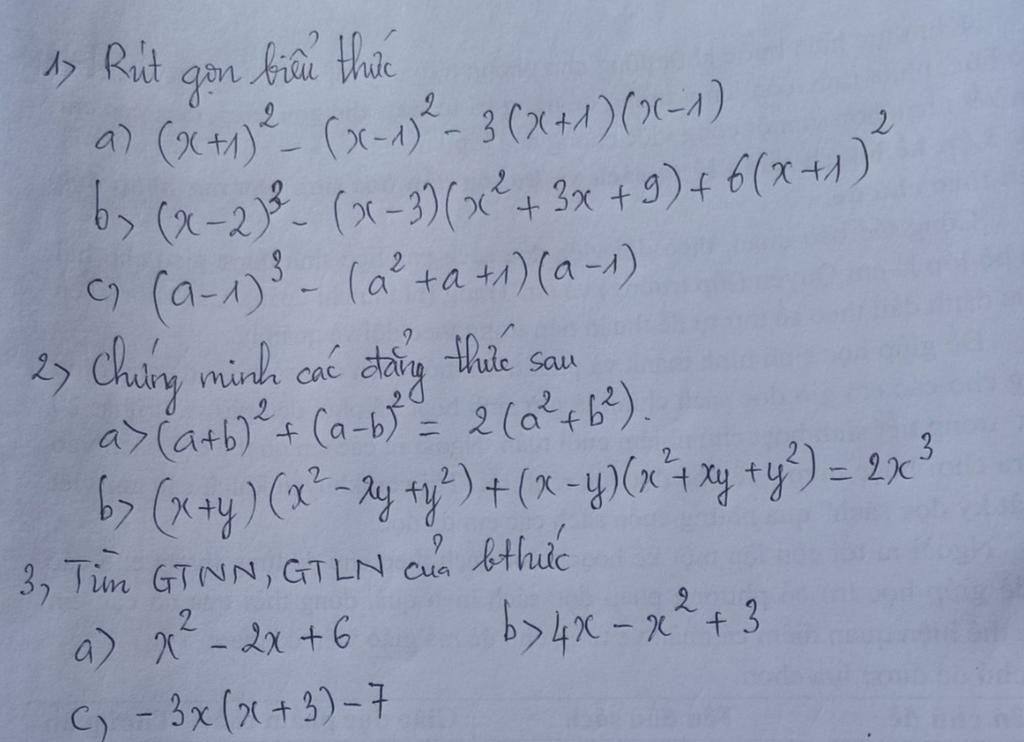 1> Rút gọn biểu thức
a) (x+1)² - (x-1)² - 3(x+1)(x-1)
b> (x-2)³ - (x-3)(x² + 3x + 9) + 6(x+1)²
c) (a-1)³ - (a² + a + 1)(a-1)
2> Chứng minh các đẳng thức sau
a> (a+b)² + (a-b)² = 2(a² + b²)
b> (x+y)(x² - xy + y²) + (x-y)(x² + xy + y²) = 2x³
3, Tìm GTNN, GTLN của bthức
a) x² - 2x + 6 b> 4x - x² + 3
c) -3x(x+3) - 7